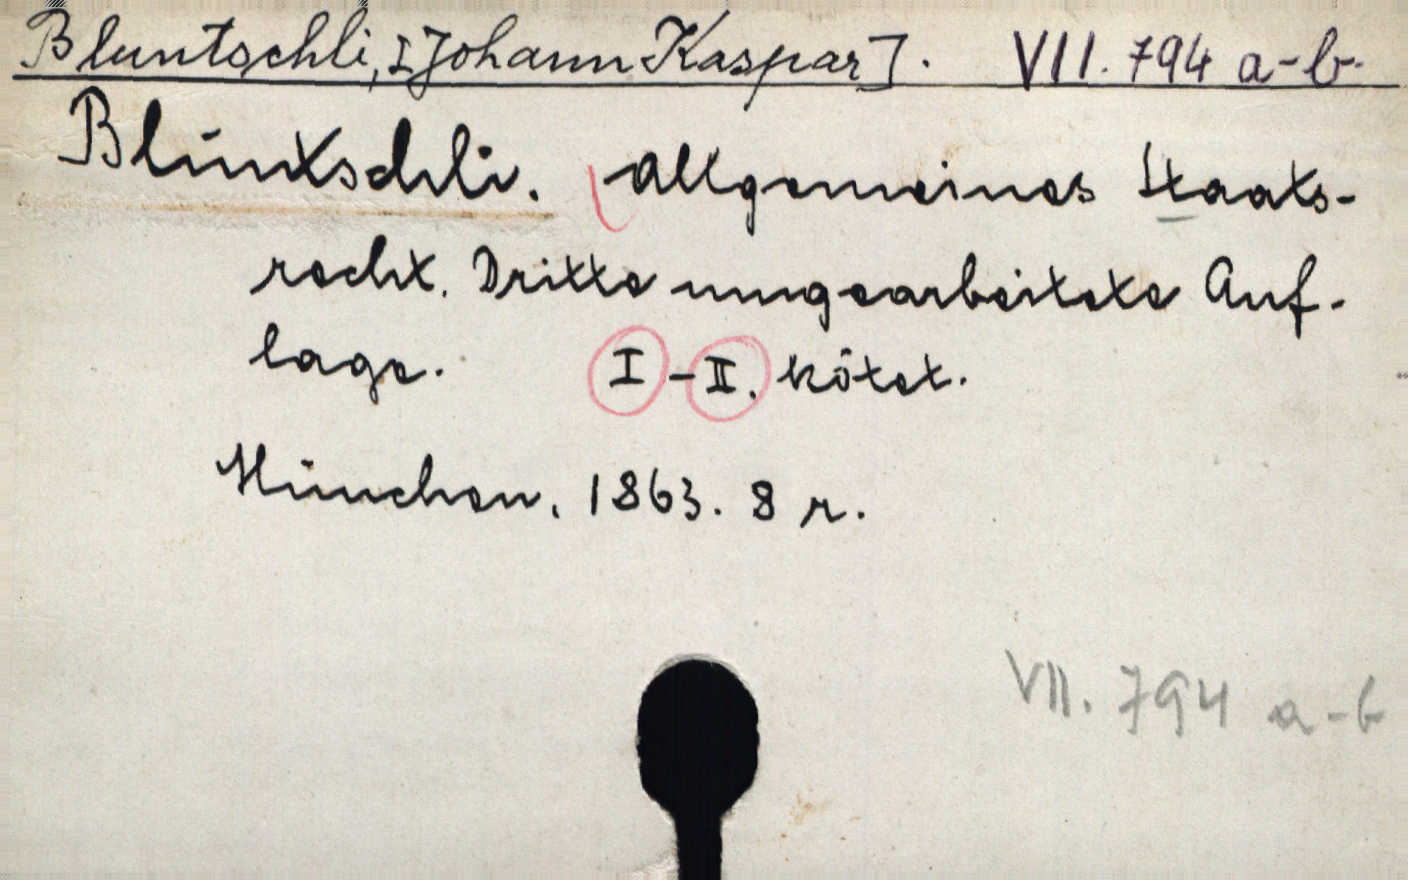 Bluntschli, [Johann Kaspar]. VII. 794 a-b.
Bluntschli. Allgemeines Staats-
recht. Dritte umgearbeitete Auf-
lage. I-II. kötet.
München, 1863. 8 r.
VII. 794 a-b